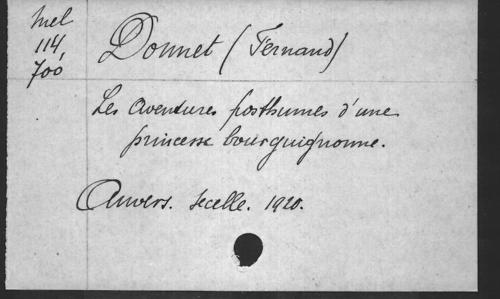 Mel
114,
700
Donnet (Fernand)
Les aventures posthumes d'une
princesse bourguignonne.
Anvers. Secelle. 1920.